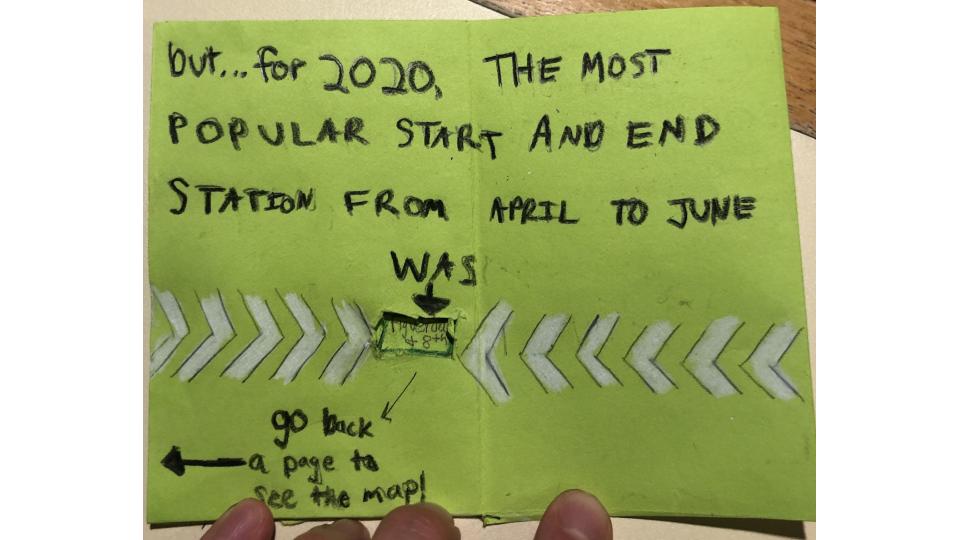 but... for 2020, THE MOST
POPULAR START AND END
STATION FROM APRIL TO JUNE
WAS
& 8th
go back
a page to
see the map!